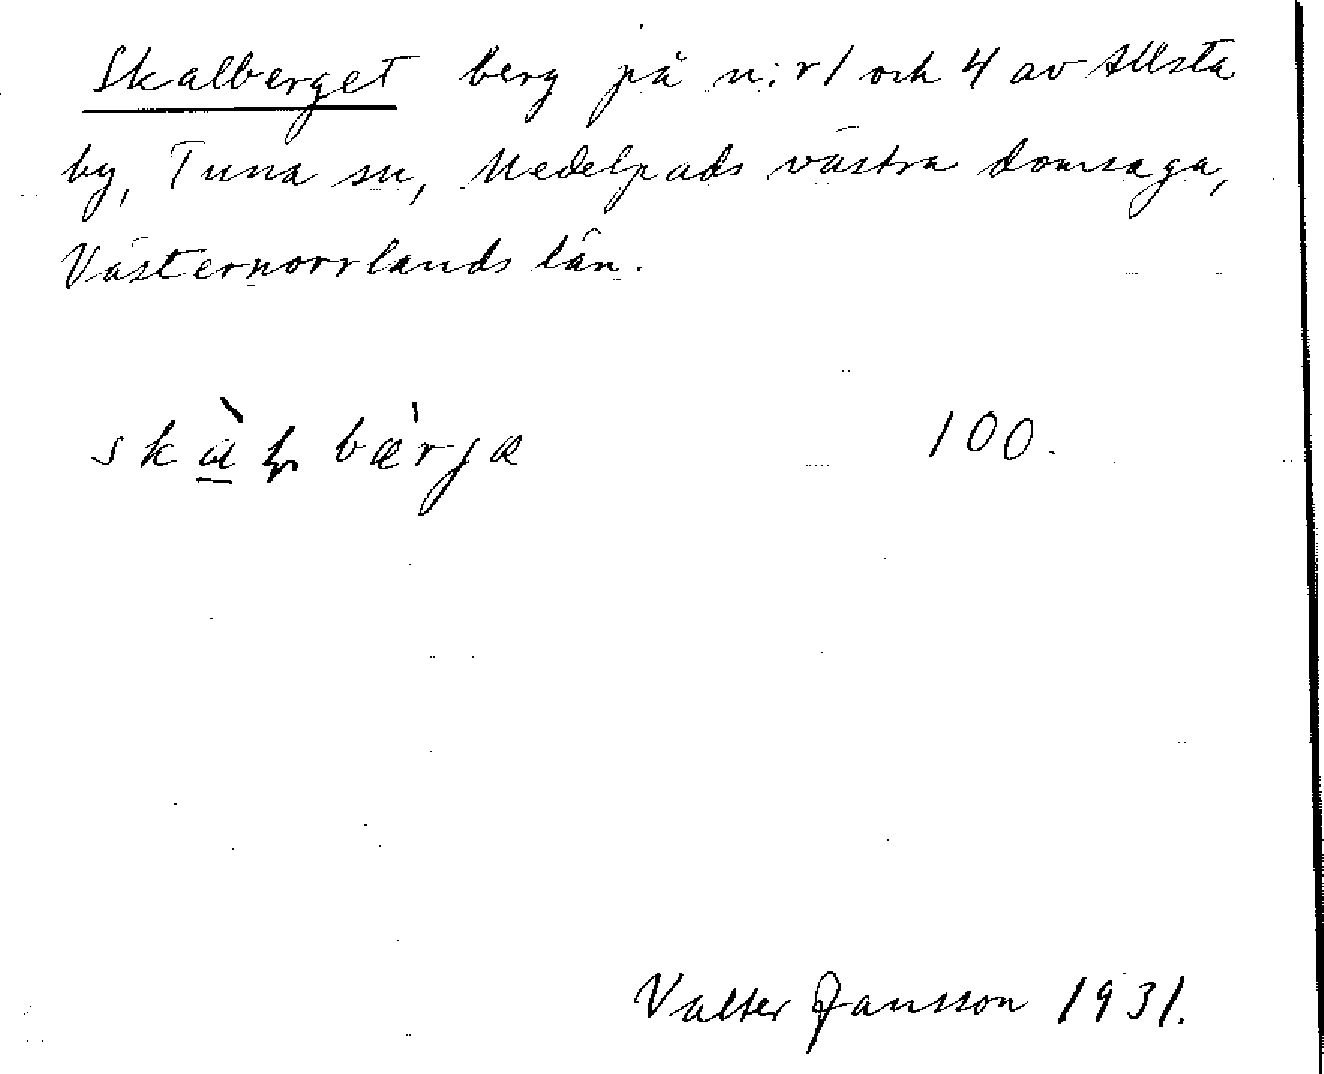 Skalberget berg på n:r 1 och 4 av Allsta
by, Tuna sn, Medelpads västra domsaga,
Västernorrlands län.
skàḷbæ̀rjæ 100.
Valter Jansson 1931.